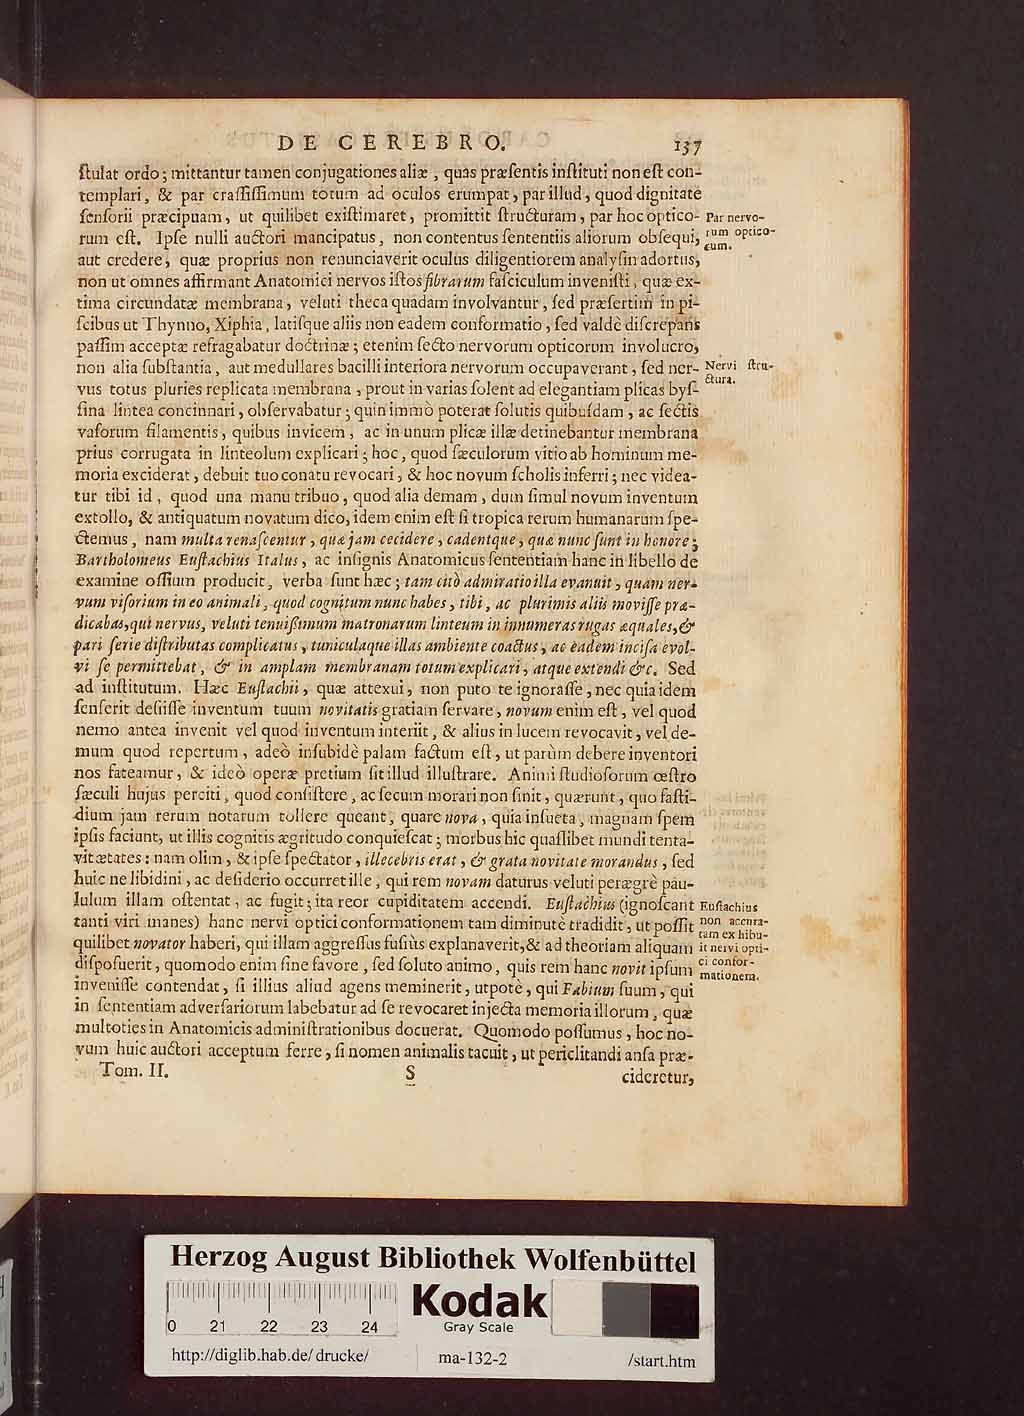 DE CEREBRO. 137
ſtulat ordo; mittantur tamen conjugationes aliæ, quas præſentis inſtituti non eſt con-
templari, & par craſſiſſimum totum ad oculos erumpat, par illud, quod dignitate
ſenſorii præcipuam, ut quilibet exiſtimaret, promittit ſtructuram, par hoc optico-
rum eſt. Ipſe nulli auctori mancipatus, non contentus ſententiis aliorum obſequi,
aut credere, quæ proprius non renunciaverit oculus diligentiorem analyſin adortus,
non ut omnes affirmant Anatomici nervos iſtos fibrarum faſciculum inveniſti, quæ ex-
tima circundatæ membrana, veluti theca quadam involvantur, ſed præſertim in pi-
ſcibus ut Thynno, Xiphia, latiſque aliis non eadem conformatio, ſed valdè diſcrepans
paſſim acceptæ refragabatur doctrinæ; etenim ſecto nervorum opticorum involucro,
non alia ſubſtantia, aut medullares bacilli interiora nervorum occupaverant, ſed ner-
vus totus pluries replicata membrana, prout in varias ſolent ad elegantiam plicas byſ-
ſina lintea concinnari, obſervabatur; quin immò poterat ſolutis quibuſdam, ac ſectis
vaſorum filamentis, quibus invicem, ac in unum plicæ illæ detinebantur membrana
prius corrugata in linteolum explicari; hoc, quod ſæculorum vitio ab hominum me-
moria exciderat, debuit tuo conatu revocari, & hoc novum ſcholis inferri; nec videa-
tur tibi id, quod una manu tribuo, quod alia demam, dum ſimul novum inventum
extollo, & antiquatum novatum dico, idem enim eſt ſi tropica rerum humanarum ſpe-
ctemus, nam multa renaſcentur, quæ jam cecidere, cadentque, quæ nunc ſunt in honore;
Bartholomeus Euſtachius Italus, ac inſignis Anatomicus ſententiam hanc in libello de
examine oſſium producit, verba ſunt hæc; tam citò admiratio illa evanuit, quam ner-
vum viſorium in eo animali, quod cognitum nunc habes, tibi, ac plurimis aliis moviſſe præ-
dicabas, qui nervus, veluti tenuiſſimum matronarum linteum in innumeras rugas æquales, &
pari ſerie diſtributas complicatus, tuniculaque illas ambiente coactus, ac eadem inciſa evol-
vi ſe permittebat, & in amplam membranam totum explicari, atque extendi &c. Sed
ad inſtitutum. Hæc Euſtachii, quæ attexui, non puto te ignoraſſe, nec quia idem
ſenſerit deſiiſſe inventum tuum novitatis gratiam ſervare, novum enim eſt, vel quod
nemo antea invenit vel quod inventum interiit, & alius in lucem revocavit, vel de-
mum quod repertum, adeò inſubidè palam factum eſt, ut parùm debere inventori
nos fateamur, & ideò operæ pretium ſit illud illuſtrare. Animi ſtudioſorum œſtro
ſæculi hujus perciti, quod conſiſtere, ac ſecum morari non ſinit, quærunt, quo faſti-
dium jam rerum notarum tollere queant, quare nova, quia inſueta, magnam ſpem
ipſis faciunt, ut illis cognitis ægritudo conquieſcat; morbus hic quaſlibet mundi tenta-
vit ætates: nam olim, & ipſe ſpectator, illecebris erat, & grata novitate morandus, ſed
huic ne libidini, ac deſiderio occurret ille, qui rem novam daturus veluti perægrè pau-
lulum illam oſtentat, ac fugit; ita reor cupiditatem accendi. Euſtachius (ignoſcant
tanti viri manes) hanc nervi optici conformationem tam diminutè tradidit, ut poſſit
quilibet novator haberi, qui illam aggreſſus fuſiùs explanaverit, & ad theoriam aliquam
diſpoſuerit, quomodo enim ſine favore, ſed ſoluto animo, quis rem hanc novit ipſum
inveniſſe contendat, ſi illius aliud agens meminerit, utpotè, qui Fabium ſuum, qui
in ſententiam adverſariorum labebatur ad ſe revocaret injecta memoria illorum, quæ
multoties in Anatomicis adminiſtrationibus docuerat. Quomodo poſſumus, hoc no-
vum huic auctori acceptum ferre, ſi nomen animalis tacuit, ut periclitandi anſa præ-
Tom. II. S cideretur,
Par nervo-
rum optico-
rum.
Nervi ſtru-
ctura.
Euſtachius
non accura-
tam exhibu-
it nervi opti-
ci confor-
mationem.
Herzog August Bibliothek Wolfenbüttel
Kodak
Gray Scale
0 21 22 23 24
http://diglib.hab.de/drucke/ ma-132-2 /start.htm